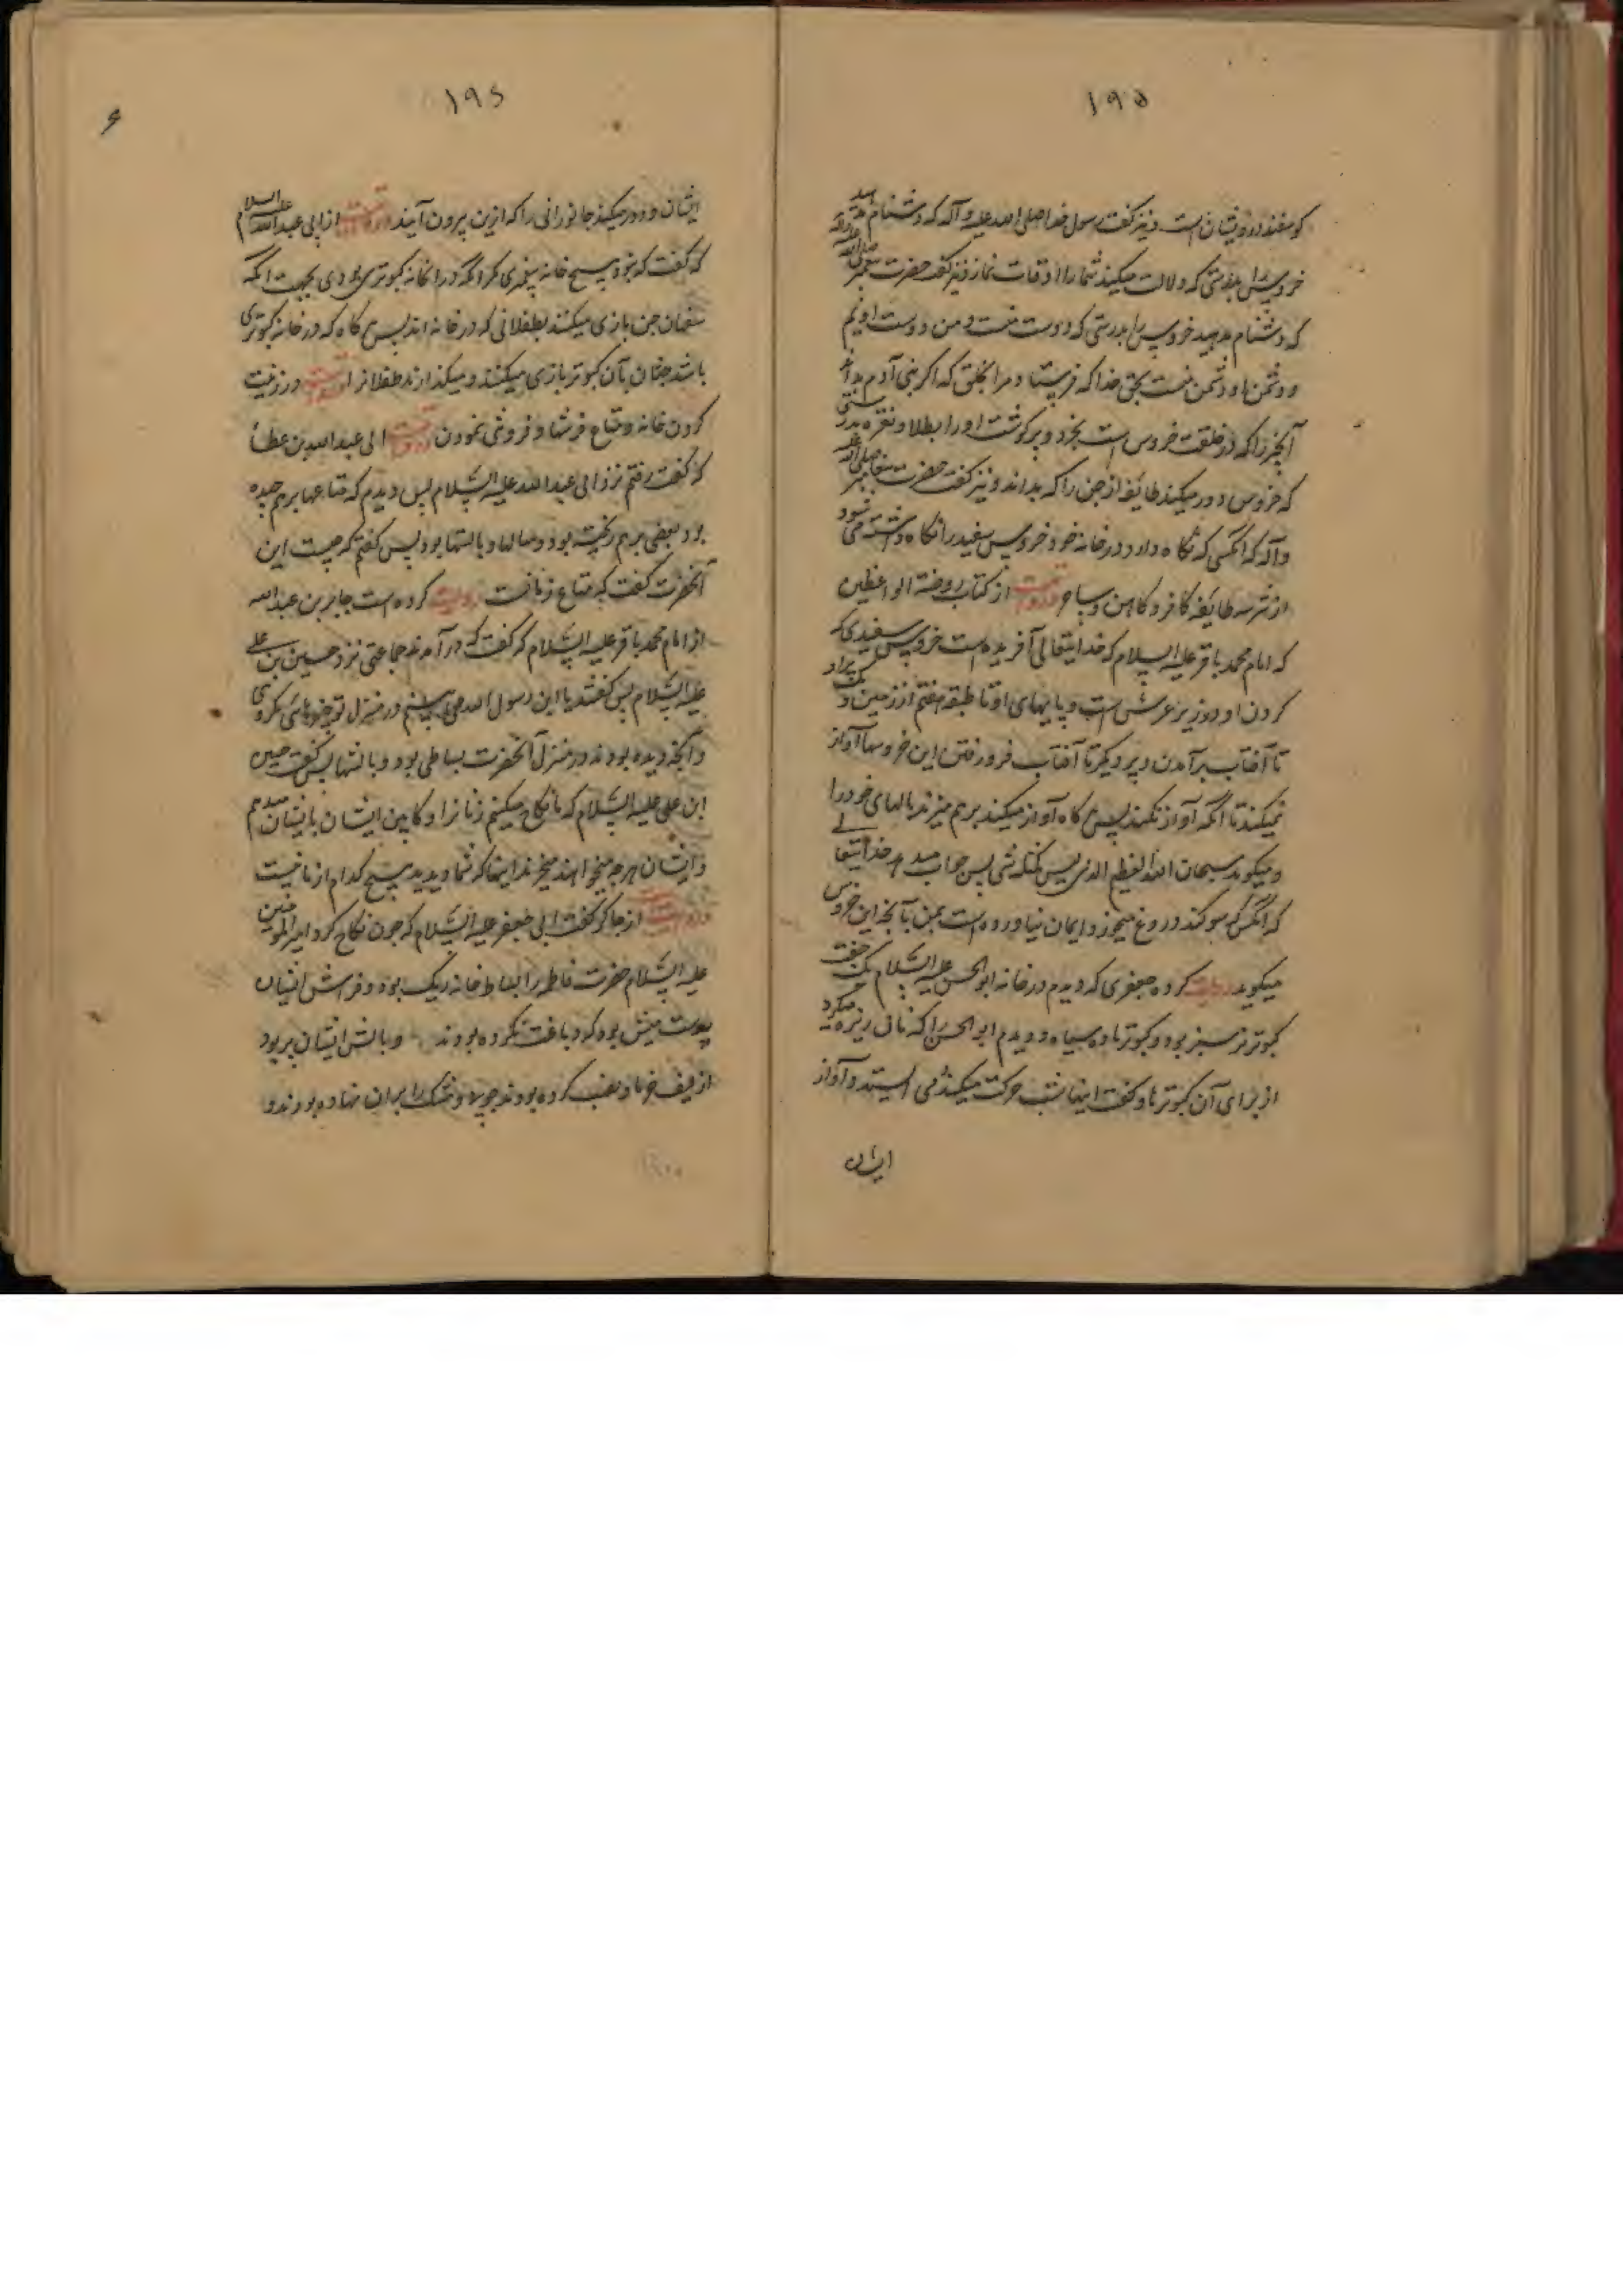 ۱۹۵
کوسفند درویشان است و نیز گفت رسول خدا صلی الله علیه و آله که دشنام مدهید
خروس را بدرستی که دلالت میکند شما را اوقات نماز و نیز گفت حضرت پیغمبر صلی الله علیه و آله
که دشنام مدهید خروس را بدرستی که دوست منست و من دوست اویم
و دشمن او دشمن منست بحق خدا که فرستاد مرا بخلق که اگر بنی آدم بداند
آنچیز را که در خلقت خروس است بخرد پر و گوشت او را بطلا و نقره بدرستی
که خروس دور میکند طایفه از جن را که بداند و نیز گفت حضرت پیغامبر صلی الله علیه
و آله که انکس که نگاه دارد در خانه خود خروس سفید را نگاه داشته می شود
از شر سه طایفه کافر و کاهن و ساحر و روایتست از کتاب روضة الواعظین
که امام محمد باقر علیه السلام که خدایتعالی آفریده است خروس سفیدی که
گردن او در زیر عرش است و پایهای او تا طبقه هفتم از زمین و یک پر او
تا آفتاب برآمدن و پر دیگر تا آفتاب فرو رفتن این خروسها آواز
نمیکنند تا انکه آواز نکند پس هر گاه آواز میکند بر هم میزند بالهای خود را
و میگوید سبحان الله العظیم الذی لیس کمثله شی پس جواب میدهد خدایتعالی
که انکس که سوکند دروغ میخورد ایمان نیاورده است بمن بآنچه این خروس
میگوید روایت کرده جعفری که دیدم در خانه ابو الحسن علیه السلام یک جفت
کبوتر نر سبز بود و کبوتر ماده سیاه و دیدم ابو الحسن را که نانی ریزه میکرد
از برای آن کبوترها و گفت اینها شب حرکت میکنند می ایستند و آواز
ایشان
۱۹۶
ایشان دور میکند جانورانی را که از زمین بیرون آیند و روایتست از ابی عبد الله علیه السلام
که گفت که نبود هیچ خانه پیغمبری مگر انکه در انخانه کبوتری بودی بجهت انکه
سفهان جن بازی میکنند بطفلانی که در خانه اند پس هر گاه که در خانه کبوتری
باشد جنان بآن کبوتر بازی میکنند و میگذارند طفلانرا در زینت
کردن خانه و متاع و فرشها و فروشی نمودن روایتست ابی عبد الله بن عطا
که گفت رفتم نزد ابی عبد الله علیه السلام پس دیدم که متاعها بر هم چیده
بود بعضی بر هم ریخته بود و بالشها بود پس گفتم که چیست این
آنحضرت گفت که متاع زنانست روایت کرده است جابر بن عبد الله
از امام محمد باقر علیه السلام که گفت که درآمدند جماعتی نزد حسین بن علی
علیه السلام پس گفتند یا ابن رسول الله می بینیم در منزل تو چیزهای مکروهی
و آنچه دیده بودند در منزل آنحضرت بساطی بود و بالشها پس گفت حسین
ابن علی علیه السلام که ما نکاح میکنیم زنانرا و کابین ایشان بایشان میدهیم
و ایشان هر چه میخواهند میخرند اینها که شما دیدید هیچ کدام از ما نیست
و روایتست از جابر گفت ابی جعفر علیه السلام که چون نکاح کرد امیر المومنین
علیه السلام حضرت فاطمه را بساط خانه ریک بود و فراش ایشان
پوست میش بود که دباغت نکرده بودند و بالش ایشان پر بود
از لیف خرما و نصب کرده بودند چوبی و مشک را بر ان نهاده بودند و